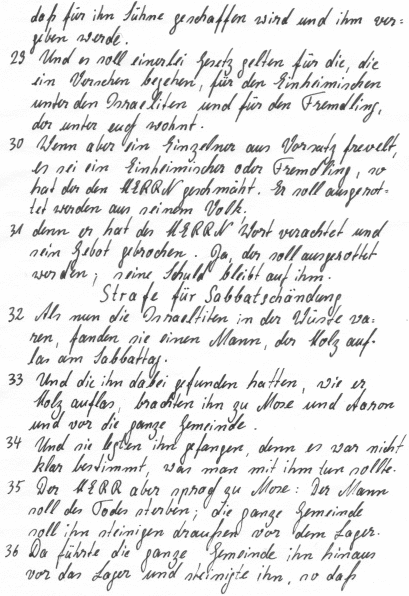 daß für ihn Sühne geschaffen wird und ihm ver=
geben werde.
29 Und es soll einerlei Gesetz gelten für die, die
ein Versehen begehen, für den Einheimischen
unter den Israeliten und für den Fremdling,
der unter euch wohnt.
30 Wenn aber ein Einzelner aus Vorsatz frevelt,
es sei ein Einheimischer oder Fremdling, so
hat der den HERRN geschmäht. Er soll ausgerot=
tet werden aus seinem Volk.
31 denn er hat des HERRN Wort verachtet und
sein Gebot gebrochen. Ja, der soll ausgerottet
werden; seine Schuld bleibt auf ihm.
Strafe für Sabbatschändung
32 Als nun die Israeltiten in der Wüste wa=
ren, fanden sie einen Mann, der Holz auf=
las am Sabbattag.
33 Und die ihn dabei gefunden hatten, wie er
Holz auflas, brachten ihn zu Mose und Aaron
und vor die ganze Gemeinde.
34 Und sie legten ihn gefangen, denn es war nicht
klar bestimmt, was man mit ihm tun sollte.
35 Der HERR aber sprach zu Mose: Der Mann
soll des Todes sterben; die ganze Gemeinde
soll ihn steinigen draußen vor dem Lager.
36 Da führte die ganze Gemeinde ihn hinaus
vor das Lager und steinigte ihn, so daß